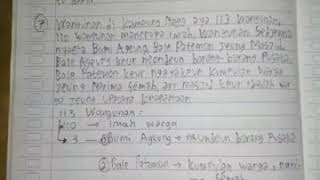 7 Wangunan di Kampung Naga aya 113 Wangunan,
110 wangunan mangrupa imah. Wangunan sejenna
nyaeta Bumi Ageung, Bale Patemon jeung Masjid.
Bale Ageung keur neundeun barang-barang Pusaka
Bale Patemon keur nyayakeun kumpulan warga
jeung narima semah, ari masjid keur ibadah war
ga jeung upacara keagamaan
113 Wangunan:
110 → imah warga
→ 3 — ① Bumi Ageung → neundeun barang Pusaka
② Bale Patemon → kumpulan warga, nari
semah